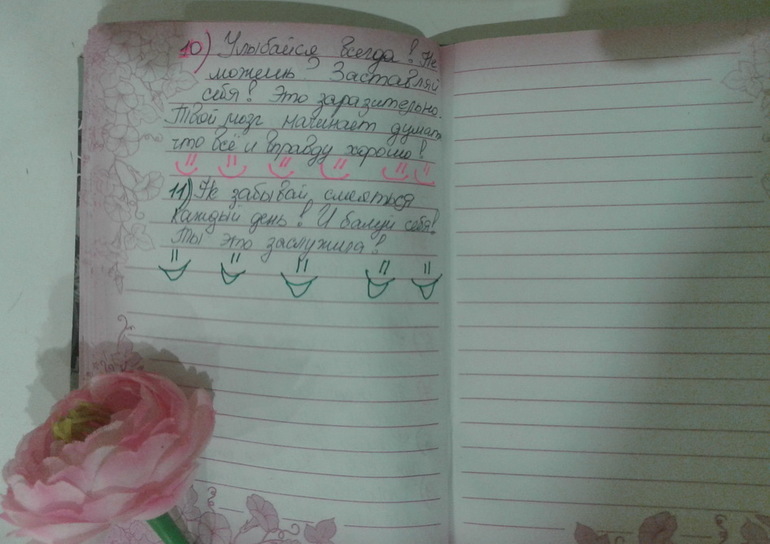 10) Улыбайся всегда! Не
можешь? Заставляй
себя! Это заразительно.
Твой мозг начинает думать
что всё и вправду хорошо!
11) Не забывай смеяться
каждый день! И балуй себя!
Ты это заслужила!